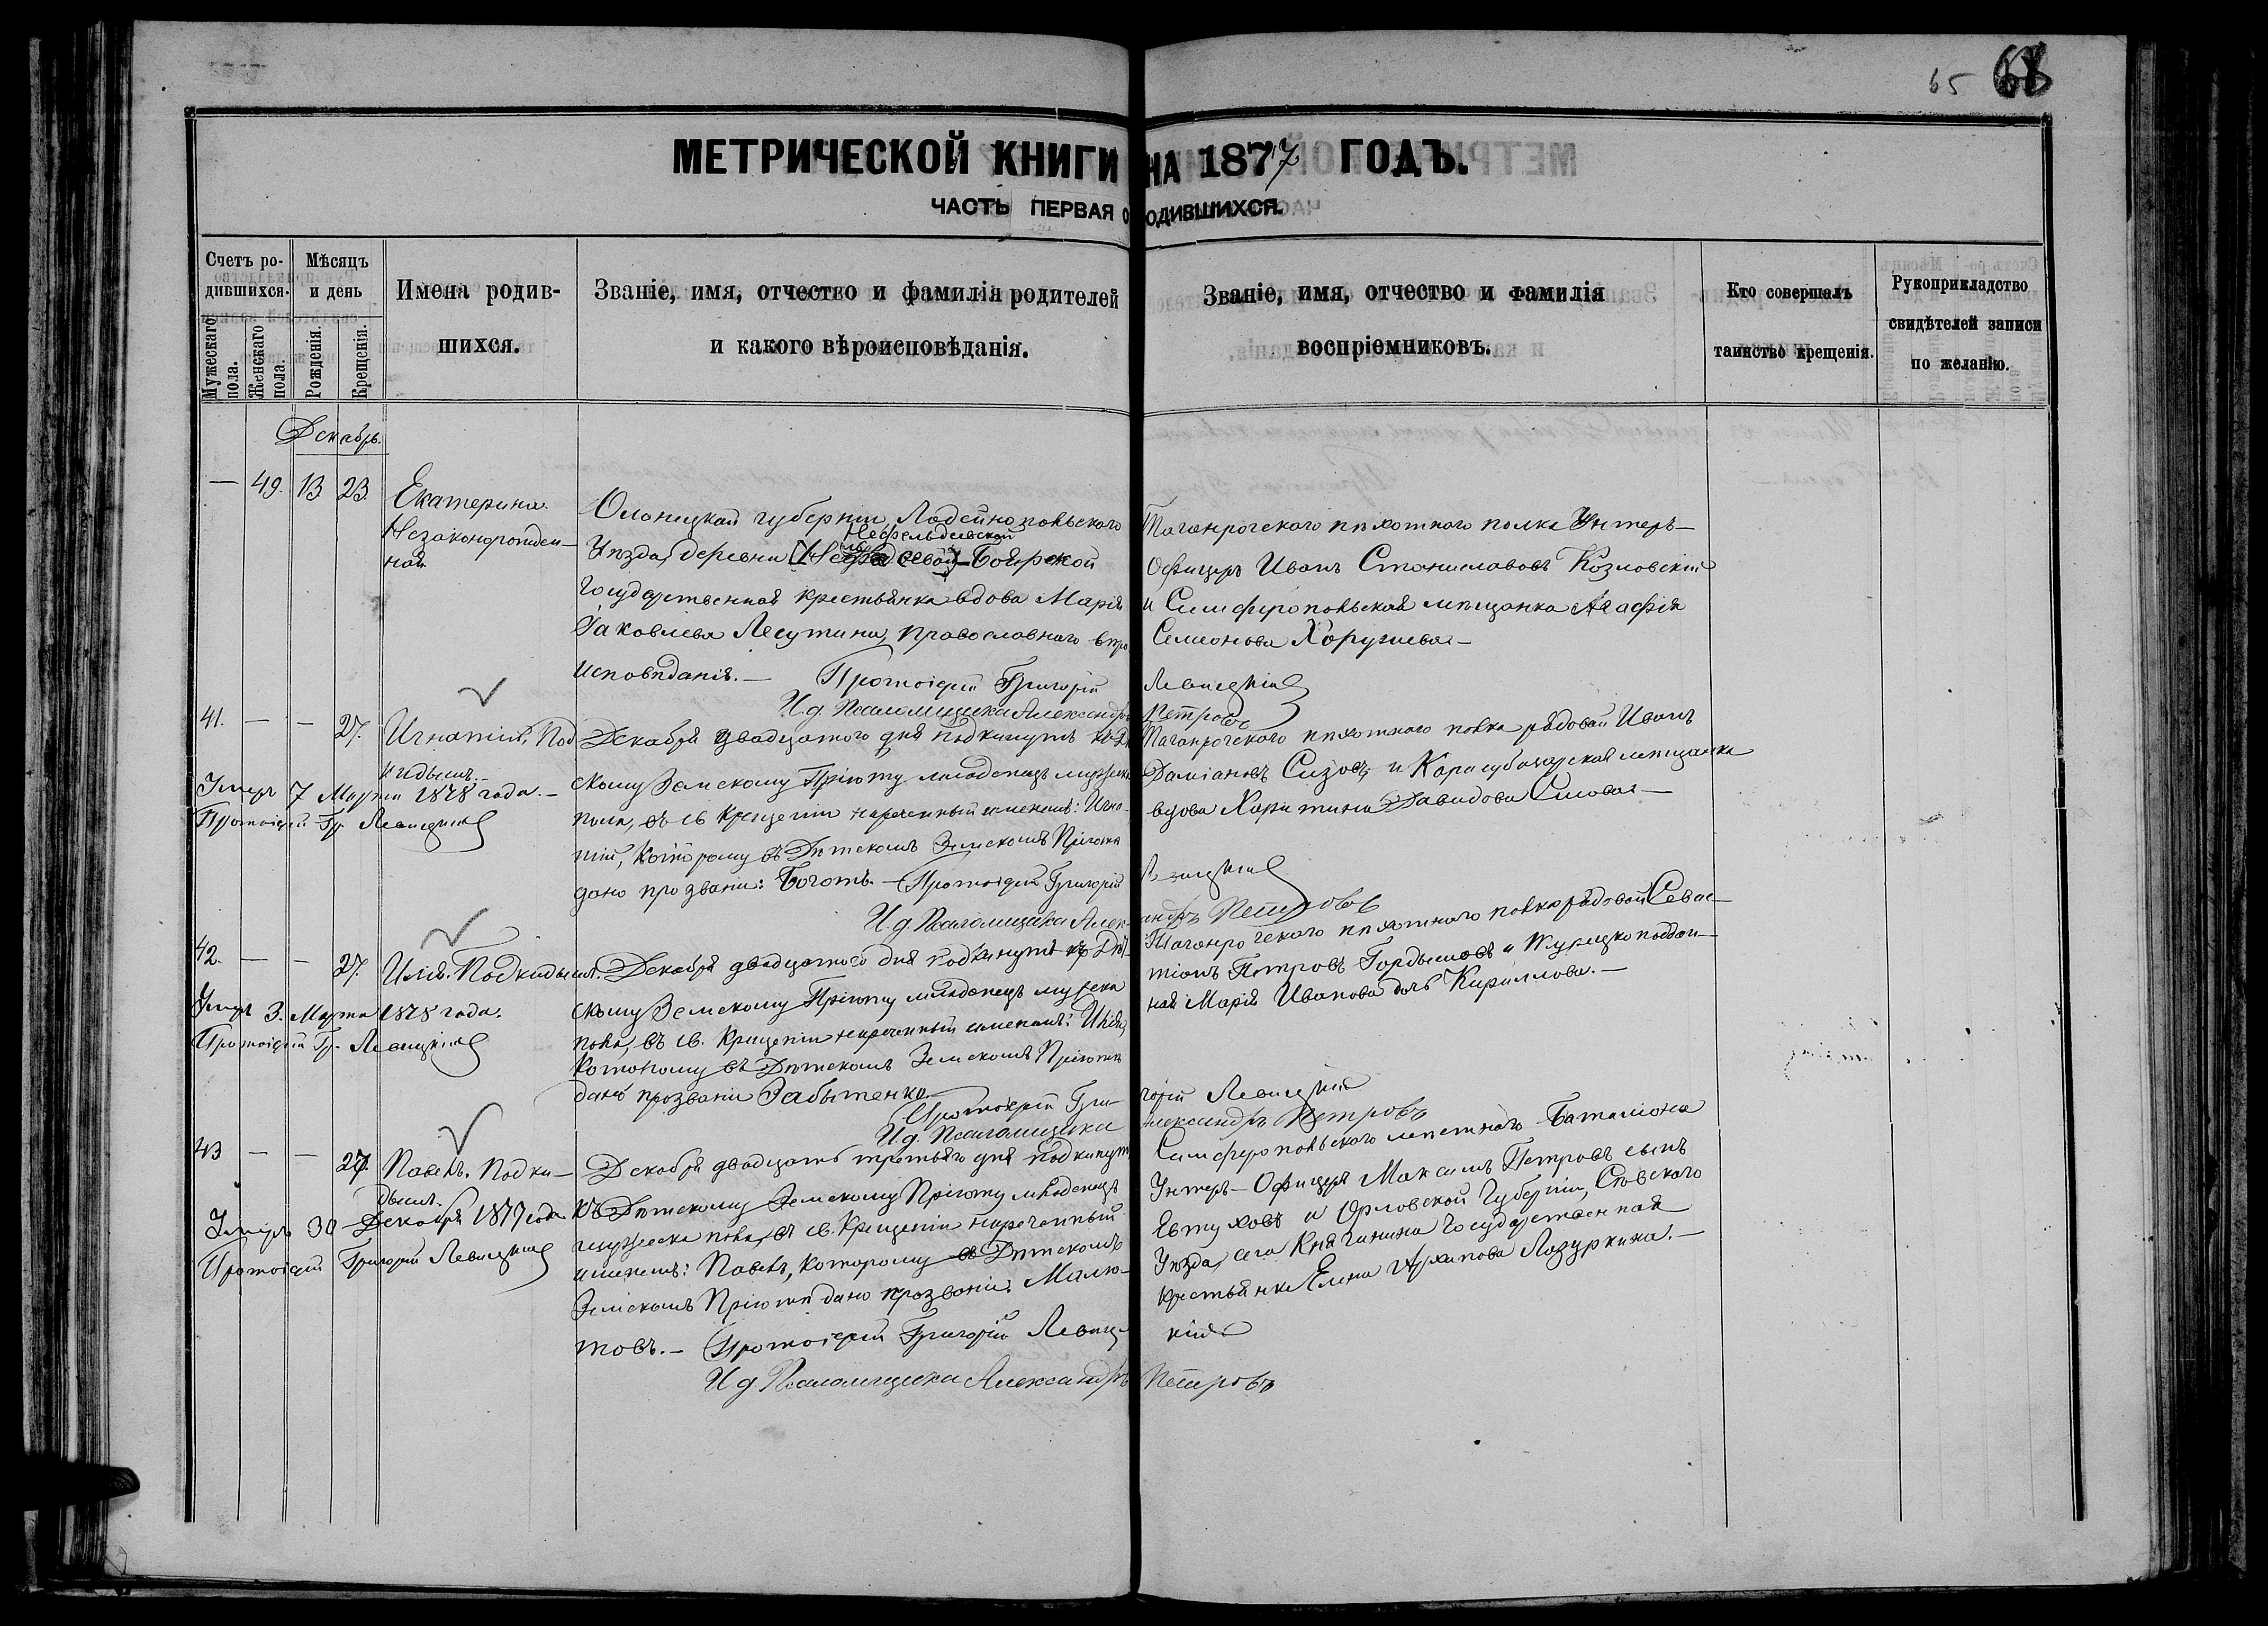 65 68
МЕТРИЧЕСКОЙ КНИГИ НА 1877 ГОДЪ.
ЧАСТЬ ПЕРВАЯ О РОДИВШИХСЯ.
Счетъ родившихся.
Мужескаго пола.
Женскаго пола.
Мѣсяцъ и день
Рожденія.
Крещенія.
Имена родив-
шихся.
Званіе, имя, отчество и фамилія родителей
и какого вѣроисповѣданія.
Званіе, имя, отчество и фамилія
воспріемниковъ.
Кто совершалъ
таинство крещенія.
Рукоприкладство
свидѣтелей записи
по желанію.
Декабрь.
— 49. 13 23.
Екатерина
Незаконорожден-
ная
Олонецкой губерніи, Лодейнопольскаго
Уѣзда, деревни Боярской
Государственная крестьянка вдова Марія
Іаковлева Лесутина, православнаго вѣро
исповѣданія. —
Протоіерей Григорій Левицкій
И. д. Псаломщика Александръ Петровъ
Таганрогскаго пѣхотнаго полка Унтеръ-
Офицеръ Иванъ Станиславовъ Козловскій
и Симферопольская мѣщанка Агафія
Семенова Хоружева —
41. — — 27.
Игнатій, Под
кидышъ. —
Умеръ 7 Марта 1878 года. —
Протоіерей Гр. Левицкій
Декабря двадцатого дня подкинутъ къ Дѣт
скому Земскому Пріюту младенецъ мужеска
пола, въ св. крещеніи нареченный именемъ: Игна-
тій, которому въ Дѣтскомъ Земскомъ Пріютѣ
дано прозваніе: Боготъ. — Протоіерей Григорій Левицкій
И. д. Псаломщика Александръ Петровъ
Таганрогскаго пѣхотнаго полка рядовой Иванъ
Даміановъ Сизовъ, и Карасубазарская мѣщанка
вдова Харитина Давидова —
42. — — 27.
Илія. Подкидышъ.
Умеръ 3. Марта 1878 года.
Протоіерей Гр. Левицкій
Декабря двадцатого дня подкинутъ къ Дѣт
скому Земскому Пріюту младенецъ мужеска
пола, въ св. крещеніи нареченный именемъ: Илія,
которому въ Дѣтскомъ Земскомъ Пріютѣ
дано прозваніе Забытенко —
Протоіерей Григорій Левицкій
И. д. Псаломщика Александръ Петровъ
Таганрогскаго пѣхотнаго полка рядовой Севас-
тіанъ Петровъ и Турецкоподдан-
ная Марія Иванова дочь Кириллова. —
43 — — 27.
Павелъ. Подки-
дышъ.
Умеръ 30 Декабря 1877 года
Протоіерей Григорій Левицкій
Декабря двадцать третьяго дня подкинутъ
къ Дѣтскому Земскому Пріюту младенецъ
мужеска пола, въ св. Крещеніи нареченный
именемъ: Павелъ, которому въ Дѣтскомъ
Земскомъ Пріютѣ дано прозваніе: Малю-
товъ. — Протоіерей Григорій Левицкій
И д Псаломщика Александръ Петровъ
Симферопольскаго мѣстнаго Баталіона
Унтеръ-Офицеръ Максимъ Петровъ сынъ
Евтуховъ и Орловской Губерніи, Сѣвскаго
Уѣзда, села Княгинина Государственная
крестьянка Елена Архипова Лазуркина. —